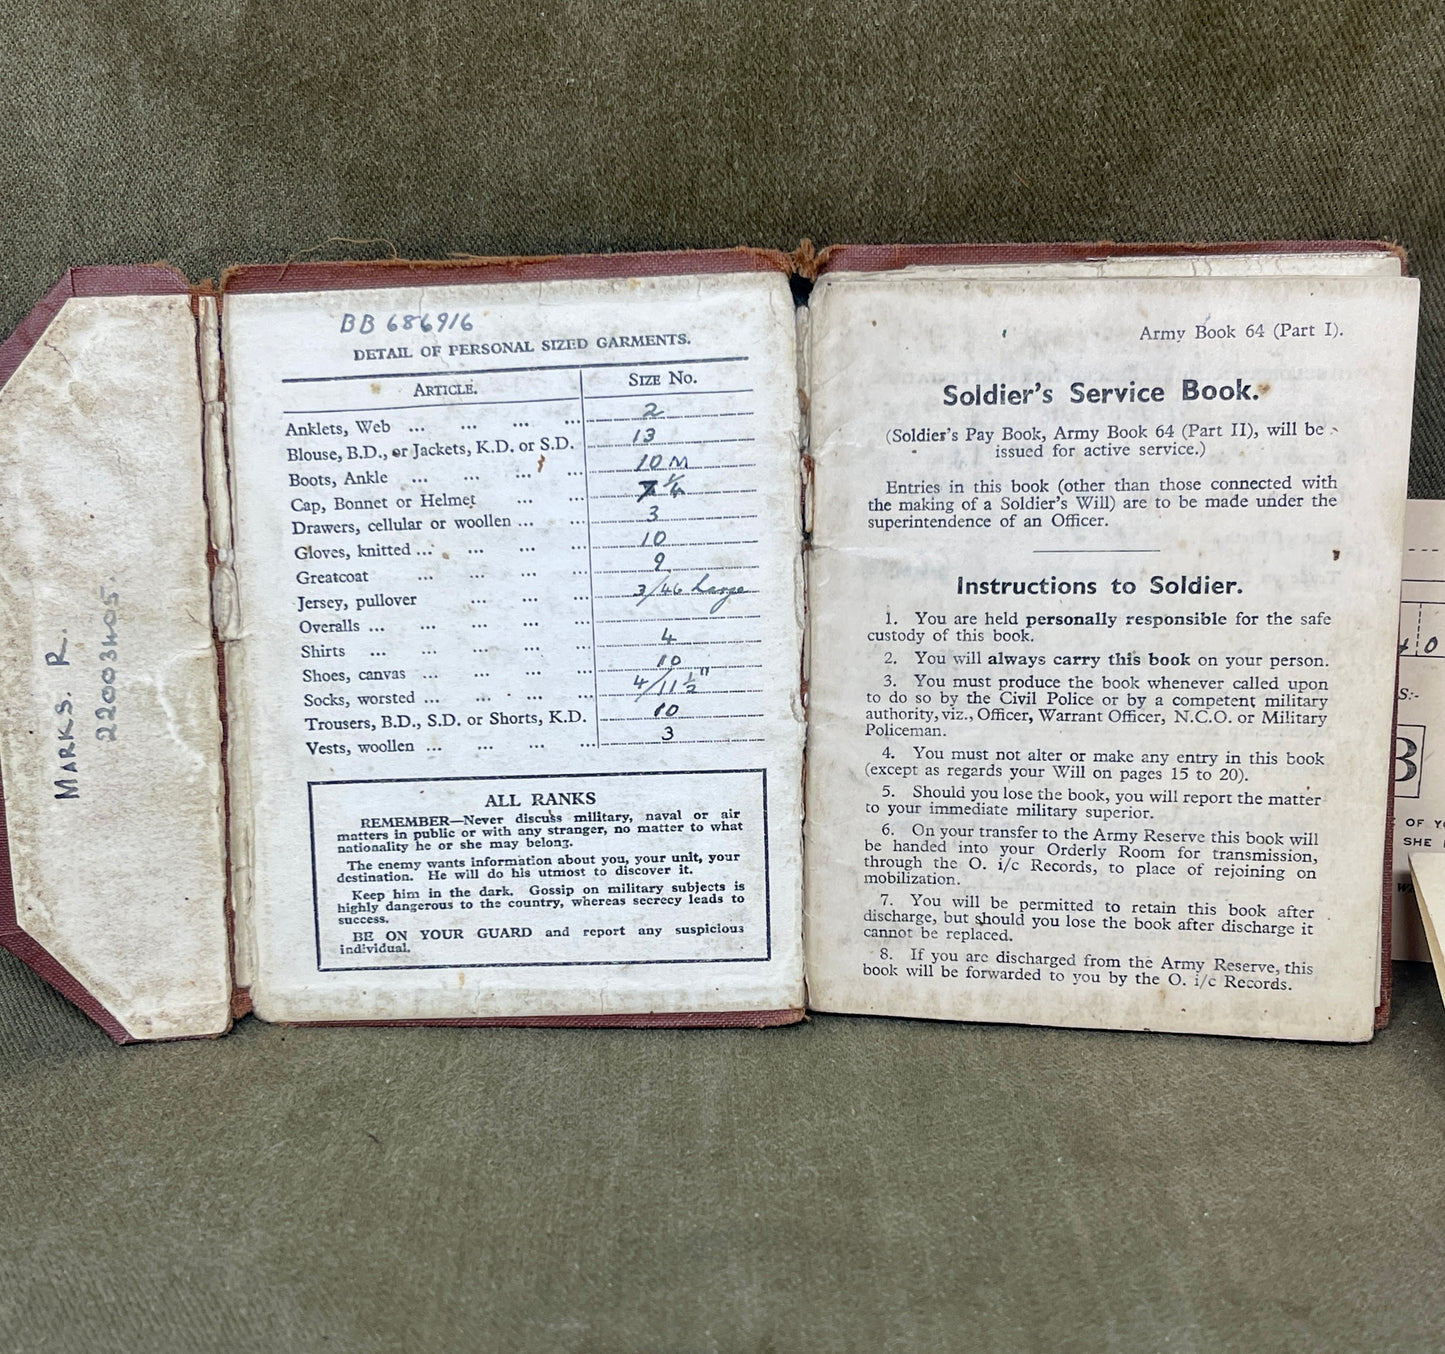 MARKS. R.
22003405.
BB 686916
DETAIL OF PERSONAL SIZED GARMENTS.
ARTICLE. SIZE No.
Anklets, Web ... ... ... ... 2
Blouse, B.D., or Jackets, K.D. or S.D. 13
Boots, Ankle ... ... ... ... 10 M
Cap, Bonnet or Helmet ... ... 7 1/4
Drawers, cellular or woollen ... ... 3
Gloves, knitted ... ... ... ... 10
Greatcoat ... ... ... ... 9
Jersey, pullover ... ... ... 3/46 Large
Overalls ... ... ... ... ...
Shirts ... ... ... ... ... 4
Shoes, canvas ... ... ... ... 10
Socks, worsted ... ... ... ... 4/11 1/2"
Trousers, B.D., S.D. or Shorts, K.D. 10
Vests, woollen ... ... ... ... 3
ALL RANKS
REMEMBER—Never discuss military, naval or air
matters in public or with any stranger, no matter to what
nationality he or she may belong.
The enemy wants information about you, your unit, your
destination. He will do his utmost to discover it.
Keep him in the dark. Gossip on military subjects is
highly dangerous to the country, whereas secrecy leads to
success.
BE ON YOUR GUARD and report any suspicious
individual.
Army Book 64 (Part I).
Soldier's Service Book.
(Soldier's Pay Book, Army Book 64 (Part II), will be
issued for active service.)
Entries in this book (other than those connected with
the making of a Soldier's Will) are to be made under the
superintendence of an Officer.
Instructions to Soldier.
1. You are held personally responsible for the safe
custody of this book.
2. You will always carry this book on your person.
3. You must produce the book whenever called upon
to do so by the Civil Police or by a competent military
authority, viz., Officer, Warrant Officer, N.C.O. or Military
Policeman.
4. You must not alter or make any entry in this book
(except as regards your Will on pages 15 to 20).
5. Should you lose the book, you will report the matter
to your immediate military superior.
6. On your transfer to the Army Reserve this book will
be handed into your Orderly Room for transmission,
through the O. i/c Records, to place of rejoining on
mobilization.
7. You will be permitted to retain this book after
discharge, but should you lose the book after discharge it
cannot be replaced.
8. If you are discharged from the Army Reserve, this
book will be forwarded to you by the O. i/c Records.
0
S:-
B
OF
SHE